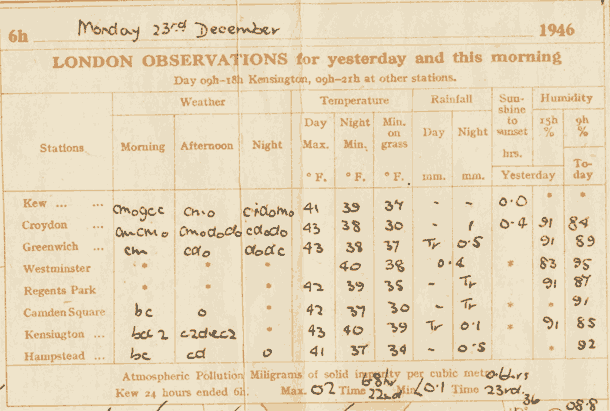 6h Monday 23rd December 1946
LONDON OBSERVATIONS for yesterday and this morning
Day 09h-18h Kensington, 09h-21h at other stations.
Stations Weather Temperature Rainfall Sunshine to sunset hrs. Humidity
Morning Afternoon Night Day Max. Night Min. Min. on grass Day Night 15h % 9h %
° F. ° F. ° F. mm. mm. Yesterday To-day
Kew ... ... cmogcc cm.o cidomo 41 39 37 - - 0.0 * *
Croydon ... omcmo omodod cdodo 43 38 30 - 1 0.4 91 84
Greenwich ... cm cdo dodc 43 38 37 Tr 0.5 91 89
Westminster * * * 40 38 0.4 * 83 95
Regents Park * * * 42 39 35 - Tr 91 87
Camden Square bc o * 42 37 30 - Tr * * 91
Kensington ... bcc2 c2dec2 * 43 40 39 Tr 0.1 * 91 85
Hampstead ... bc cd o 41 37 34 - 0.5 * 92
Atmospheric Pollution Miligrams of solid impurity per cubic metre
Kew 24 hours ended 6h. Max. 02 Time 22nd Min. <0.1 Time 23rd
36
08.8